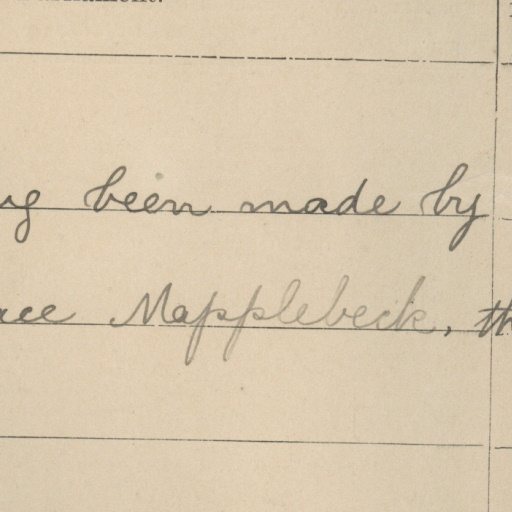 been made by
Mapplebeck, th